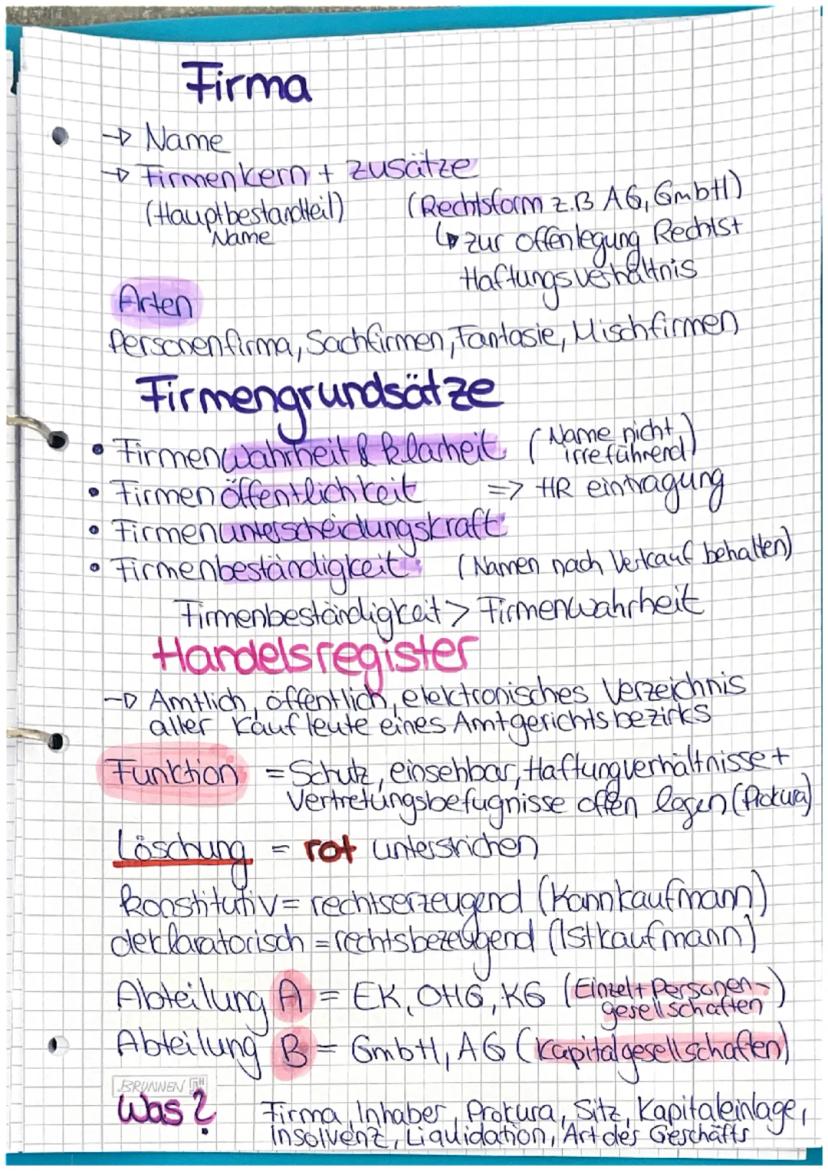 Firma
→ Name
→ Firmenkern + Zusätze
(Hauptbestandteil) (Rechtsform z.B AG, GmbH)
Name
↳ zur offenlegung Rechtst
Haftungsverhältnis
Arten
Personenfirma, Sachfirmen, Fantasie, Mischfirmen
Firmengrundsätze
• Firmenwahrheit & klarheit (Name nicht irreführend)
• Firmenöffentlichkeit => HR eintragung
• Firmenunterscheidungskraft
• Firmenbeständigkeit (Namen nach Verkauf behalten)
Firmenbeständigkeit > Firmenwahrheit
Handelsregister
→ Amtlich, öffentlich, elektronisches Verzeichnis
aller Kaufleute eines Amtgerichtsbezirks
Funktion = Schutz, einsehbar, Haftungverhältnisse +
Vertretungsbefugnisse offen legen (Prokura)
Löschung = rot unterstrichen
Konstitutiv = rechtserzeugend (Kannkaufmann)
deklaratorisch = rechtsbezeugend (Istkaufmann)
Abteilung A = EK, OHG, KG (Einzel + Personen-
gesellschaften)
Abteilung B = GmbH, AG (Kapitalgesellschaften)
BRUNNEN
Was? Firma, Inhaber, Prokura, Sitz, Kapitaleinlage,
Insolvenz, Liquidation, Art des Geschäfts